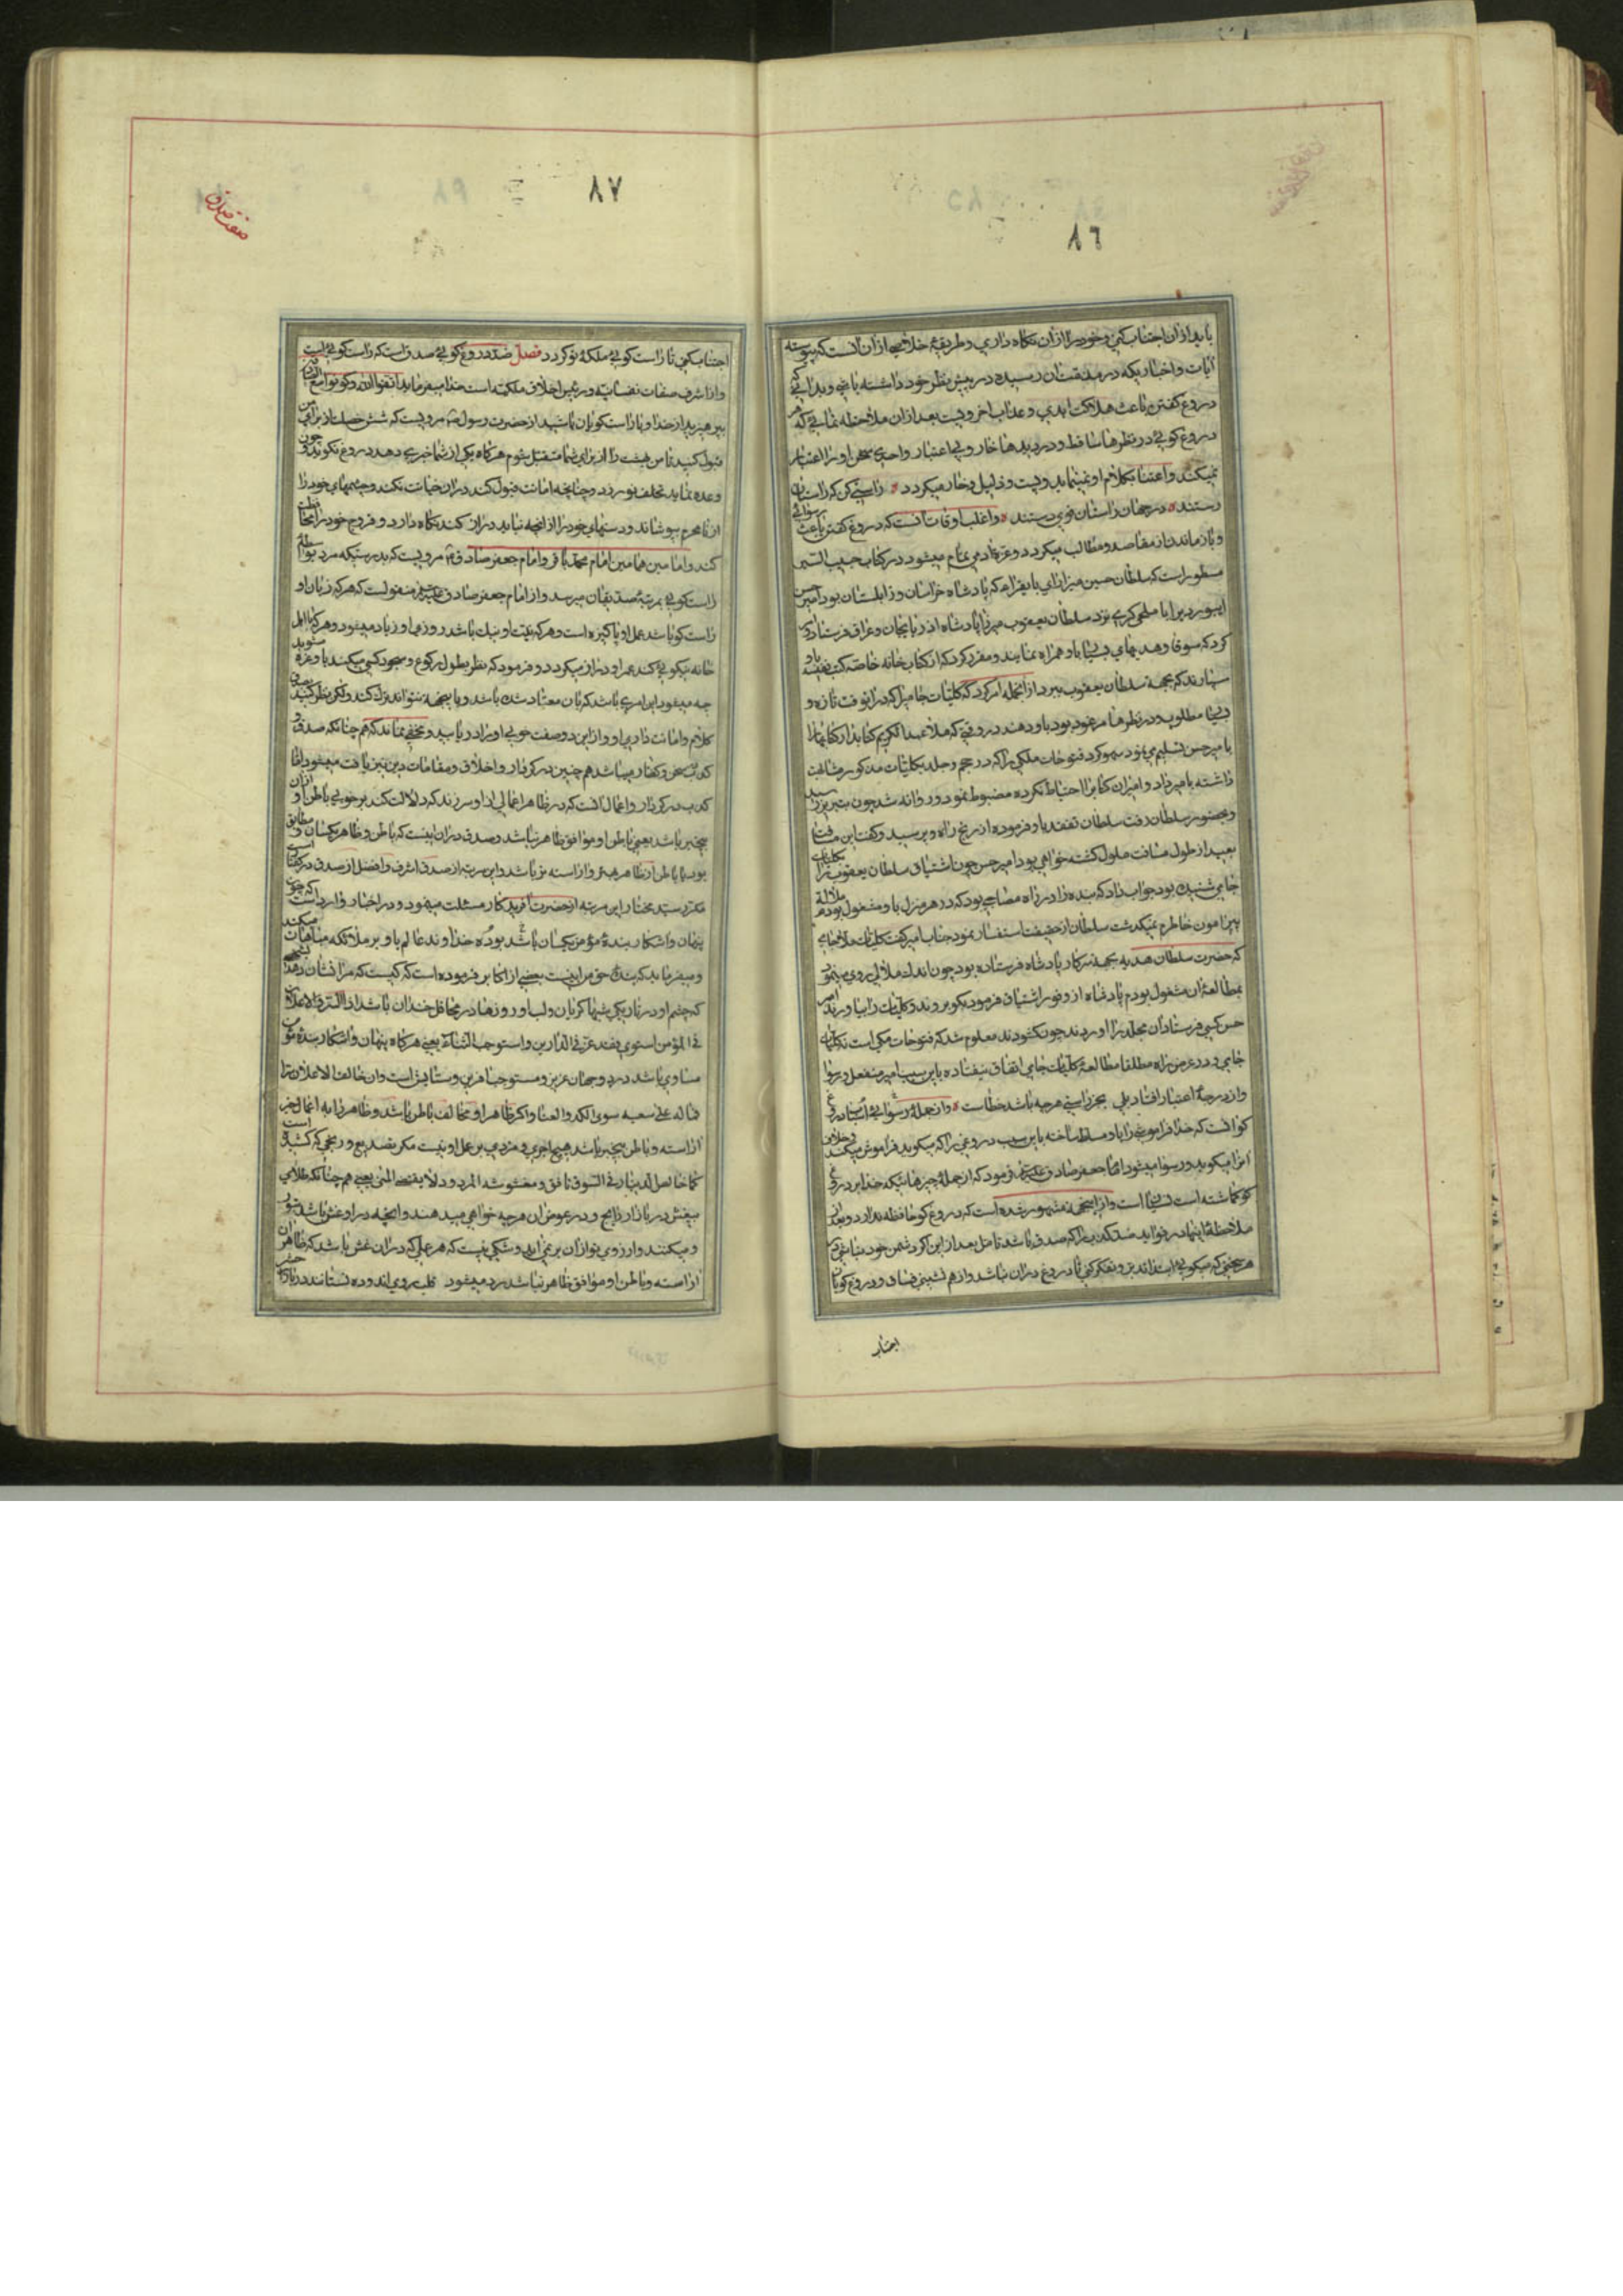 ٨٦
باید از ان اجتناب کنی و خود را از ان نگاه داری و طریقهٔ خلاصی از ان انست که پیوسته
ایات و اخباریکه در مذمت ان رسیده در پیش نظر خود داشته باشی و بدانی که
دروغ گفتن باعث هلاکت ابدی و عذاب اخرویست بعد از ان ملاحظه نمائی که هر
دروغ کوئی در نظرها ساقط و در دیدها خار و بی اعتبار و احدی سخن او را اعتبار
نمیکند و اعتنا بکلام او نمینماید و پست و ذلیل و خار میکردد راستی کن که راستان
رستند در جهان راستان قوی دستند و اغلب اوقات انست که دروغ گفتن باعث رسوائی
و باز ماندن از مقاصد و مطالب میکردد و عزت ادمی تمام میشود در کتاب حبیب السیر
مسطور است که سلطان حسین میرزای بایقرا که پادشاه خراسان و زابلستان بود امیر حسین
ابیوردی را با ملخی کری نزد سلطان یعقوب میرزا پادشاه اذربایجان و عراق فرستاد و
کرد که سوقات و هدیهای بسیار با او همراه نمایند و مقرر کرد که از کتابخانه خاصه کتب نفیسه باو
سپارند که بجهة سلطان یعقوب ببرد از انجمله امر کرد که کلیات جامی را که در انوقت تازه و
بسیار مطلوب و در نظرها مرغوب بود باو دهند در وقتی که ملا عبد الکریم کتابدار کتابها را
بامیر حسن تسلیم مینمود سهو کرد فتوحات مکی را که در حجم و جلد بکلیات مذکور مشابهت
داشته بامیر داد و امیر ان کتاب را احتیاط نکرده مضبوط نمود و روانه شد چون بتبریز رسید
و بحضور سلطان رفت سلطان تفقد باو فرموده از رنج راه و پرسید و کفت این مسافت
بعید از طول مسافت ملول کشته خواهی بود امیر حسن چون اشتیاق سلطان یعقوب را بکلیات
جامی شنیده بود جواب داد که بنده را در راه مصاحبی بود که در هر منزل باو مشغول بودم ملالة
پیرامون خاطرم نمیکذشت سلطان از حقیقت استفسار نمود جناب امیر کفت کلیات ملا جامی
که حضرت سلطان هدیه بجهة سرکار پادشاه فرستاده بود چون اندک ملالی روی مینمود
بمطالعهٔ ان مشغول بودم پادشاه از وفور اشتیاق فرمود بکو بروند و کلیات را بیاورند امیر
حسن کسی فرستاد ان مجلد را اوردند چون کشودند معلوم شد که فتوحات مکی است نه کلیات
جامی و در عرض راه مطلقا مطالعهٔ کلیات جامی اتفاق نیفتاده باین سبب امیر منفعل و رسوا
و از درجهٔ اعتبار افتاد بلی بجز راستی هرچه باشد خطاست و از جملهٔ رسوائی اسباب دروغ
کو انست که خدا فراموشی را باو مسلط ساخته باین سبب دروغی را که میکوید فراموش میکند و خلاف
انرا میکوید و رسوا میشود امام جعفر صادق علیه السلام فرمود که از جملهٔ چیزهائیکه خدا بر دروغ
کو کماشته است نسیان است و از اینجهة مشهور شده است که دروغ کو حافظه ندارد و بعد از
ملاحظهٔ اینها در فواید ضد کذب را که صدق باشد تامل بعد از این اکر دشمن خود نباشی در
هر سخنی که میکوئی ابتدا تدبر و تفکر کنی تا دروغ در ان نباشد و از هم نشینی فساق و دروغ کویان
اجتناب
٨٧
صفت صدق
اجتناب کنی تا راست کوئی ملکهٔ تو کردد فصل ضد دروغ کوئی صدق است که راست کوئی است
و ان اشرف صفات نفسانیه و رئیس اخلاق ملکیه است خدا میفرماید اتقوا الله و کونوا مع الصادقین
بپرهیزید از خدا و با راست کویان باشید از حضرت رسول مرویست که شش خصلت از برای من
قبول کنید تا من بهشت را از برای شما متقبل شوم هرکاه یکی از شما خبری دهد دروغ نکوید و چون
وعده نماید تخلف نورزد و چنانچه امانت قبول کند در ان خیانت نکند و چشمهای خود را
از نامحرم بپوشاند و دستهای خود را از انچه نباید دراز کند نکاه دارد و فروج خود را محافظت
کند و امامین همامین امام محمد باقر و امام جعفر صادق مرویست که بدرستیکه مرد بواسطه
راست کوئی بمرتبهٔ صدیقان میرسد و از امام جعفر صادق علیه السلام منقولست که هرکه زبان او
راست کو باشد عمل او پاکیزه است و هرکه نیت او نیک باشد روزی او زیاد میشود و هرکه با اهل
خانه نیکوئی کند عمر او دراز میکردد و فرمود که نظر بطول رکوع و سجود کسی میکنید باو غره مشوید
چه میشود این امری باشد که بان معتاد شده باشد و باینجهة نتواند ترک کند ولکن نظر کنید بصدق
کلام و امانت داری او و از این دو صفت خوبی او را دریابید و مخفی نماند که هم چنانکه صدق و
کذب در سخن و کفتار میباشد هم چنین در کردار و اخلاق و مقامات دین نیز یافت میشود اما
کذب در کردار و اعمال انست که در ظاهر اعمالی از او سر زند که دلالت کند بر خوبی باطن او و از ان
بیخبر باشد یعنی باطن او موافق ظاهر نباشد و صدق در ان اینست که باطن و ظاهر یکسان و مطابق
بود یا باطن از ظاهر بهتر و اراسته تر باشد و این مرتبه از صدق اشرف و افضل از صدق در کفتار است
مکرر سید مختار این مرتبه از حضرت افریدکار مسئلت مینمود و در اخبار وارد است که چون
پنهان و اشکار بندهٔ مؤمن یکسان باشد خداوند عالم باو بر ملائکه مباهات میکند
و میفرماید که بنده حق من اینست بعضی از اکابر فرموده است که کیست که مرا نشان دهد
که چشم او در تاریکی شبها کریان و لب او روزها در محافل خندان باشد اذا السر و الاعلان
فی المؤمن استوی فقد عز فی الدارین و استوجب الثناء یعنی هرکاه پنهان و اشکار بندهٔ مؤمن
مساوی باشد در دو جهان عزیز و مستوجب افرین و ستایش است وان خالف الاعلان سرا
فما له علی سعیه سوی الکد و العنا و اکر ظاهر او مخالف باطن باشد و ظاهر را به اعمال خیر
اراسته و باطن بیخبر باشد هیچ اجری و مزدی بر عمل او نیست مکر تصدیع و رنجی که کشیده است
کما خالص الدینار فی السوق نافق و مغشوشه المردود لا یقتضی المنی یعنی هم چنانکه طلای
بیغش در بازار رایج و در عوض ان هرچه خواهی میدهند و انچه در او غش باشد
و میکنند و ارزوی تو از ان بر نمی اید و شکی نیست که هر عملی که در ان غش باشد که ظاهر ان
اراسته و باطن او موافق ظاهر نباشد رد میشود قلب روی اندوده نستانند در بازار حشر